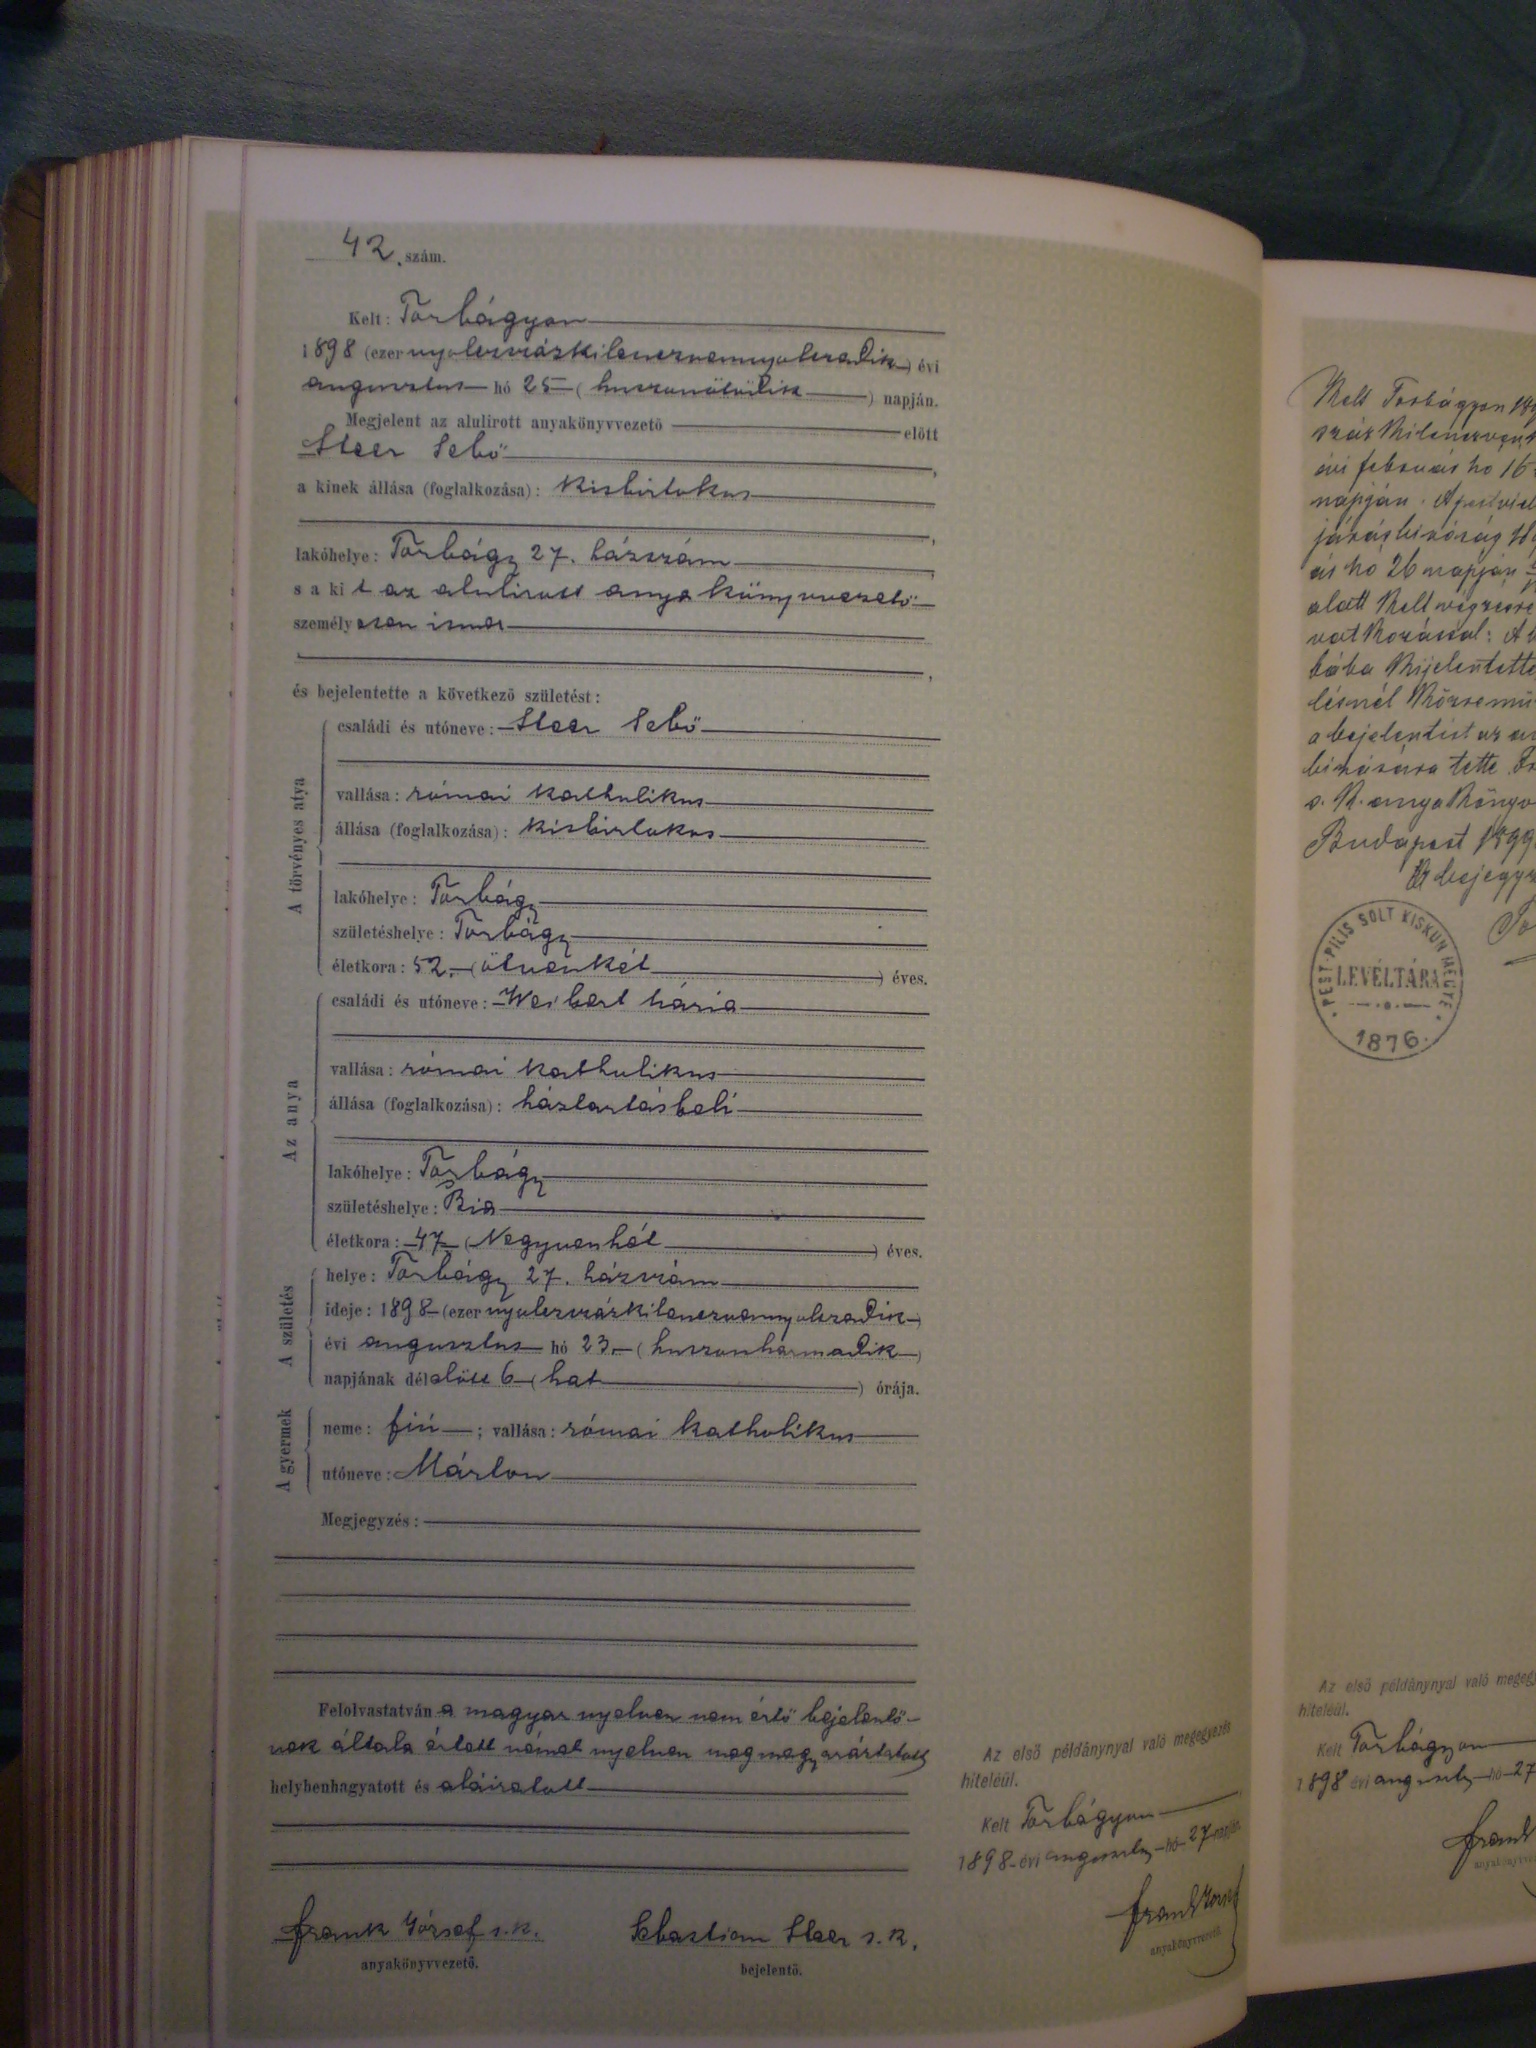 42. szám.
Kelt: Torbágyon
1898 (ezer nyolczszázkilenczvennyolczadik) évi
augusztus hó 25 (huszonötödik) napján.
Megjelent az alulirott anyakönyvvezető előtt
Steer Sebő,
a kinek állása (foglalkozása): kisbirtokos
,
lakóhelye: Torbágy 27. házszám,
s a kit az alulirott anyakönyvvezető
személyesen ismer
,
és bejelentette a következő születést:
A törvényes atya
családi és utóneve: Steer Sebő
vallása: római katholikus
állása (foglalkozása): kisbirtokos
lakóhelye: Torbágy
születéshelye: Torbágy
életkora: 52. (ötvenkét) éves.
Az anya
családi és utóneve: Weibert Mária
vallása: római katholikus
állása (foglalkozása): háztartásbeli
lakóhelye: Torbágy
születéshelye: Bia
életkora: 47 (Negyvenhét) éves.
A születés
helye: Torbágy 27. házszám
ideje: 1898 (ezer nyolczszázkilenczvennyolczadik)
évi augusztus hó 23. (huszonharmadik)
napjának délelőtt 6 (hat) órája.
A gyermek
neme: fiú; vallása: római katholikus
utóneve: Márton
Megjegyzés:
Felolvastatván a magyar nyelven nem értő bejelentő-
nek általa értett német nyelven megmagyaráztatott
helybenhagyatott és aláiratott
Frank József s. k.
anyakönyvvezető.
Sebastian Steer s. k.
bejelentő.
Az első példánynyal való megegyezés
hiteléül.
Kelt Torbágyon
1898 évi augusztus hó 27 napján.
Frank József
anyakönyvvezető
Kelt Torbágyon
száz kilenczven
évi február hó 15
napján. A pestvid
járásbiróság
ás hó 26 napján
alatt kelt végzésre
vatkozással: A
bába kijelentette
lésnél közremű
a bejelentést az
bízására tette. Fr
s. k. anyakönyv
Budapest 1899
A bejegyz
PEST PILIS SOLT KISKUN MEGYE
LEVÉLTÁRA
1876.
Az első példánynyal való megegy
hiteléül.
Kelt Torbágyon
1898 évi augusztus hó 27
Frank